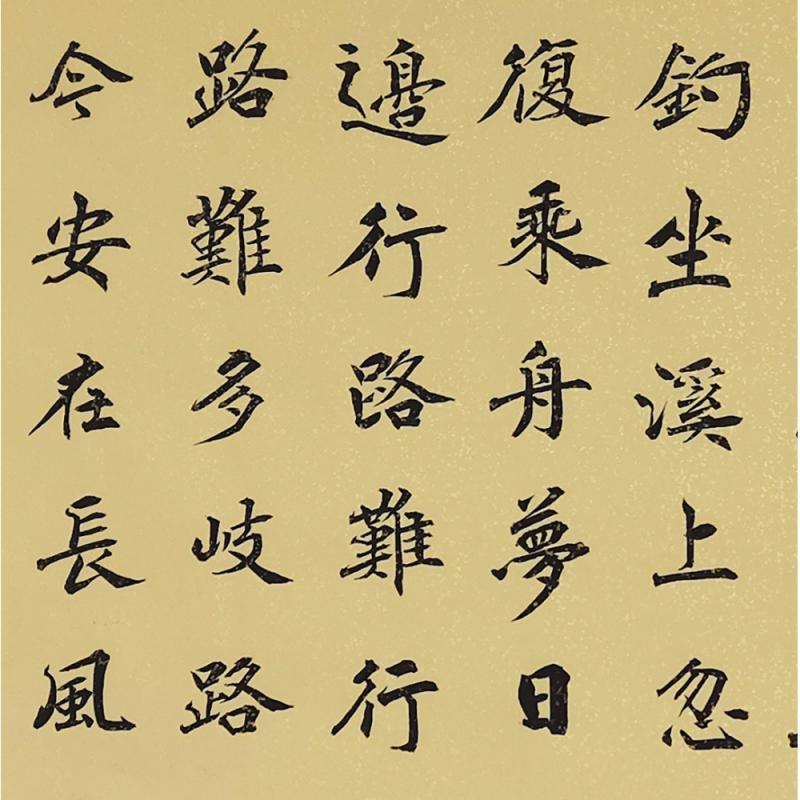 釣坐溪上忽
復乘舟夢日
邉行路難行
路難多岐路
今安在長風